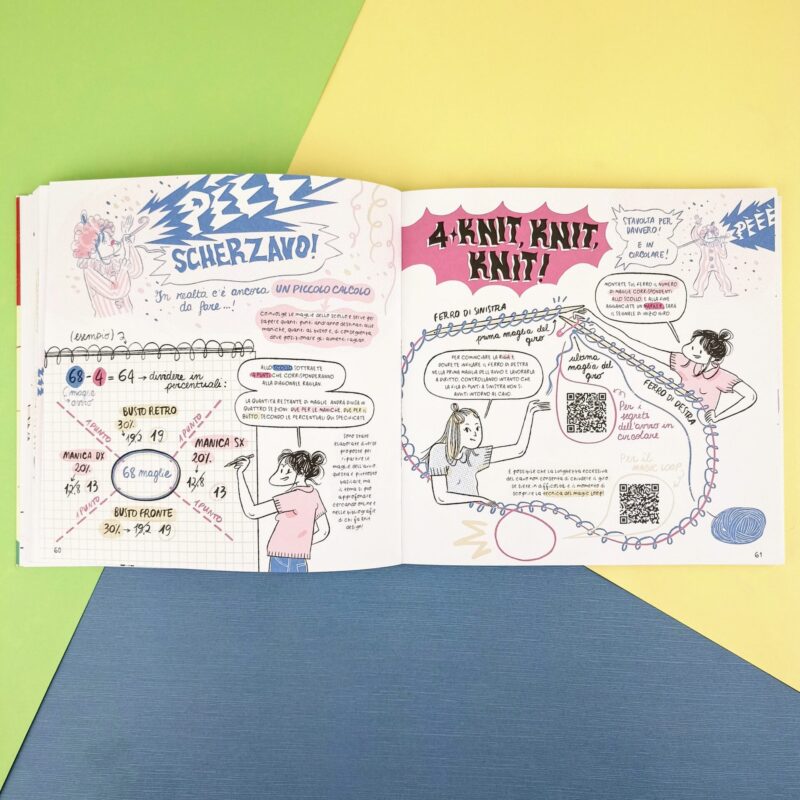 PÈÈÈ
SCHERZAVO!
In realtà c'è ancora UN PICCOLO CALCOLO
da fare...!
COINVOLGE LE MAGLIE DELLO SCOLLO E SERVE PER
SAPERE QUANTI PUNTI ANDRANNO DESTINATI ALLE
MANICHE, QUANTI AL BUSTO E, DI CONSEGUENZA,
DOVE POSIZIONARE GLI AUMENTI RAGLAN
(esempio) 2
68 - 4 = 64 → dividere in
percentuali:
(maglie
avvio)
ALLO SCOLLO SOTTRAETE
4 PUNTI CHE CORRISPONDERANNO
ALLA DIAGONALE RAGLAN
LA QUANTITÀ RESTANTE DI MAGLIE ANDRÀ DIVISA IN
QUATTRO SEZIONI: DUE PER LE MANICHE, DUE PER IL
BUSTO, SECONDO LE PERCENTUALI QUI SPECIFICATE
BUSTO RETRO
30%
→ 19,2 19
1 PUNTO
1 PUNTO
MANICA DX
20%
12,8 13
68 maglie
MANICA SX
20%
12,8 13
1 PUNTO
1 PUNTO
BUSTO FRONTE
30% → 19,2 19
SONO STATE
ELABORATE DIVERSE
PROPOSTE PER
RIPARTIRE LE
MAGLIE DELL'AVVIO.
QUESTA È PIUTTOSTO
BASILARE, MA
IL TEMA SI PUÒ
APPROFONDIRE
CERCANDO ONLINE E
NELLE BIBLIOGRAFIE
DI CHI FA KNIT
DESIGN!
60
4 KNIT, KNIT,
KNIT!
STAVOLTA PER
DAVVERO!
E IN
CIRCOLARE!
PÈÈÈ
MONTATE SUL FERRO IL NUMERO
DI MAGLIE CORRISPONDENTI
ALLO SCOLLO, E ALLA FINE
AGGANCIATE UN MARKER, SARÀ
IL SEGNALE DI INIZIO GIRO.
FERRO DI SINISTRA
prima maglia del
giro
ultima
maglia del
giro
FERRO DI DESTRA
PER COMINCIARE LA RIGA 1,
DOVRETE INFILARE IL FERRO DI DESTRA
NELLA PRIMA MAGLIA DELL'AVVIO E LAVORARLA
A DIRITTO, CONTROLLANDO INTANTO CHE
LA FILA DI PUNTI A SINISTRA NON SI
AVVITI INTORNO AL CAVO
Per i
segreti
dell'avvio in
circolare
Per il
MAGIC LOOP
È POSSIBILE CHE LA LUNGHEZZA ECCESSIVA
DEL CAVO NON CONSENTA DI CHIUDERE IL GIRO.
SE SIETE IN DIFFICOLTÀ È IL MOMENTO DI
SCOPRIRE LA TECNICA DEL MAGIC LOOP!
61